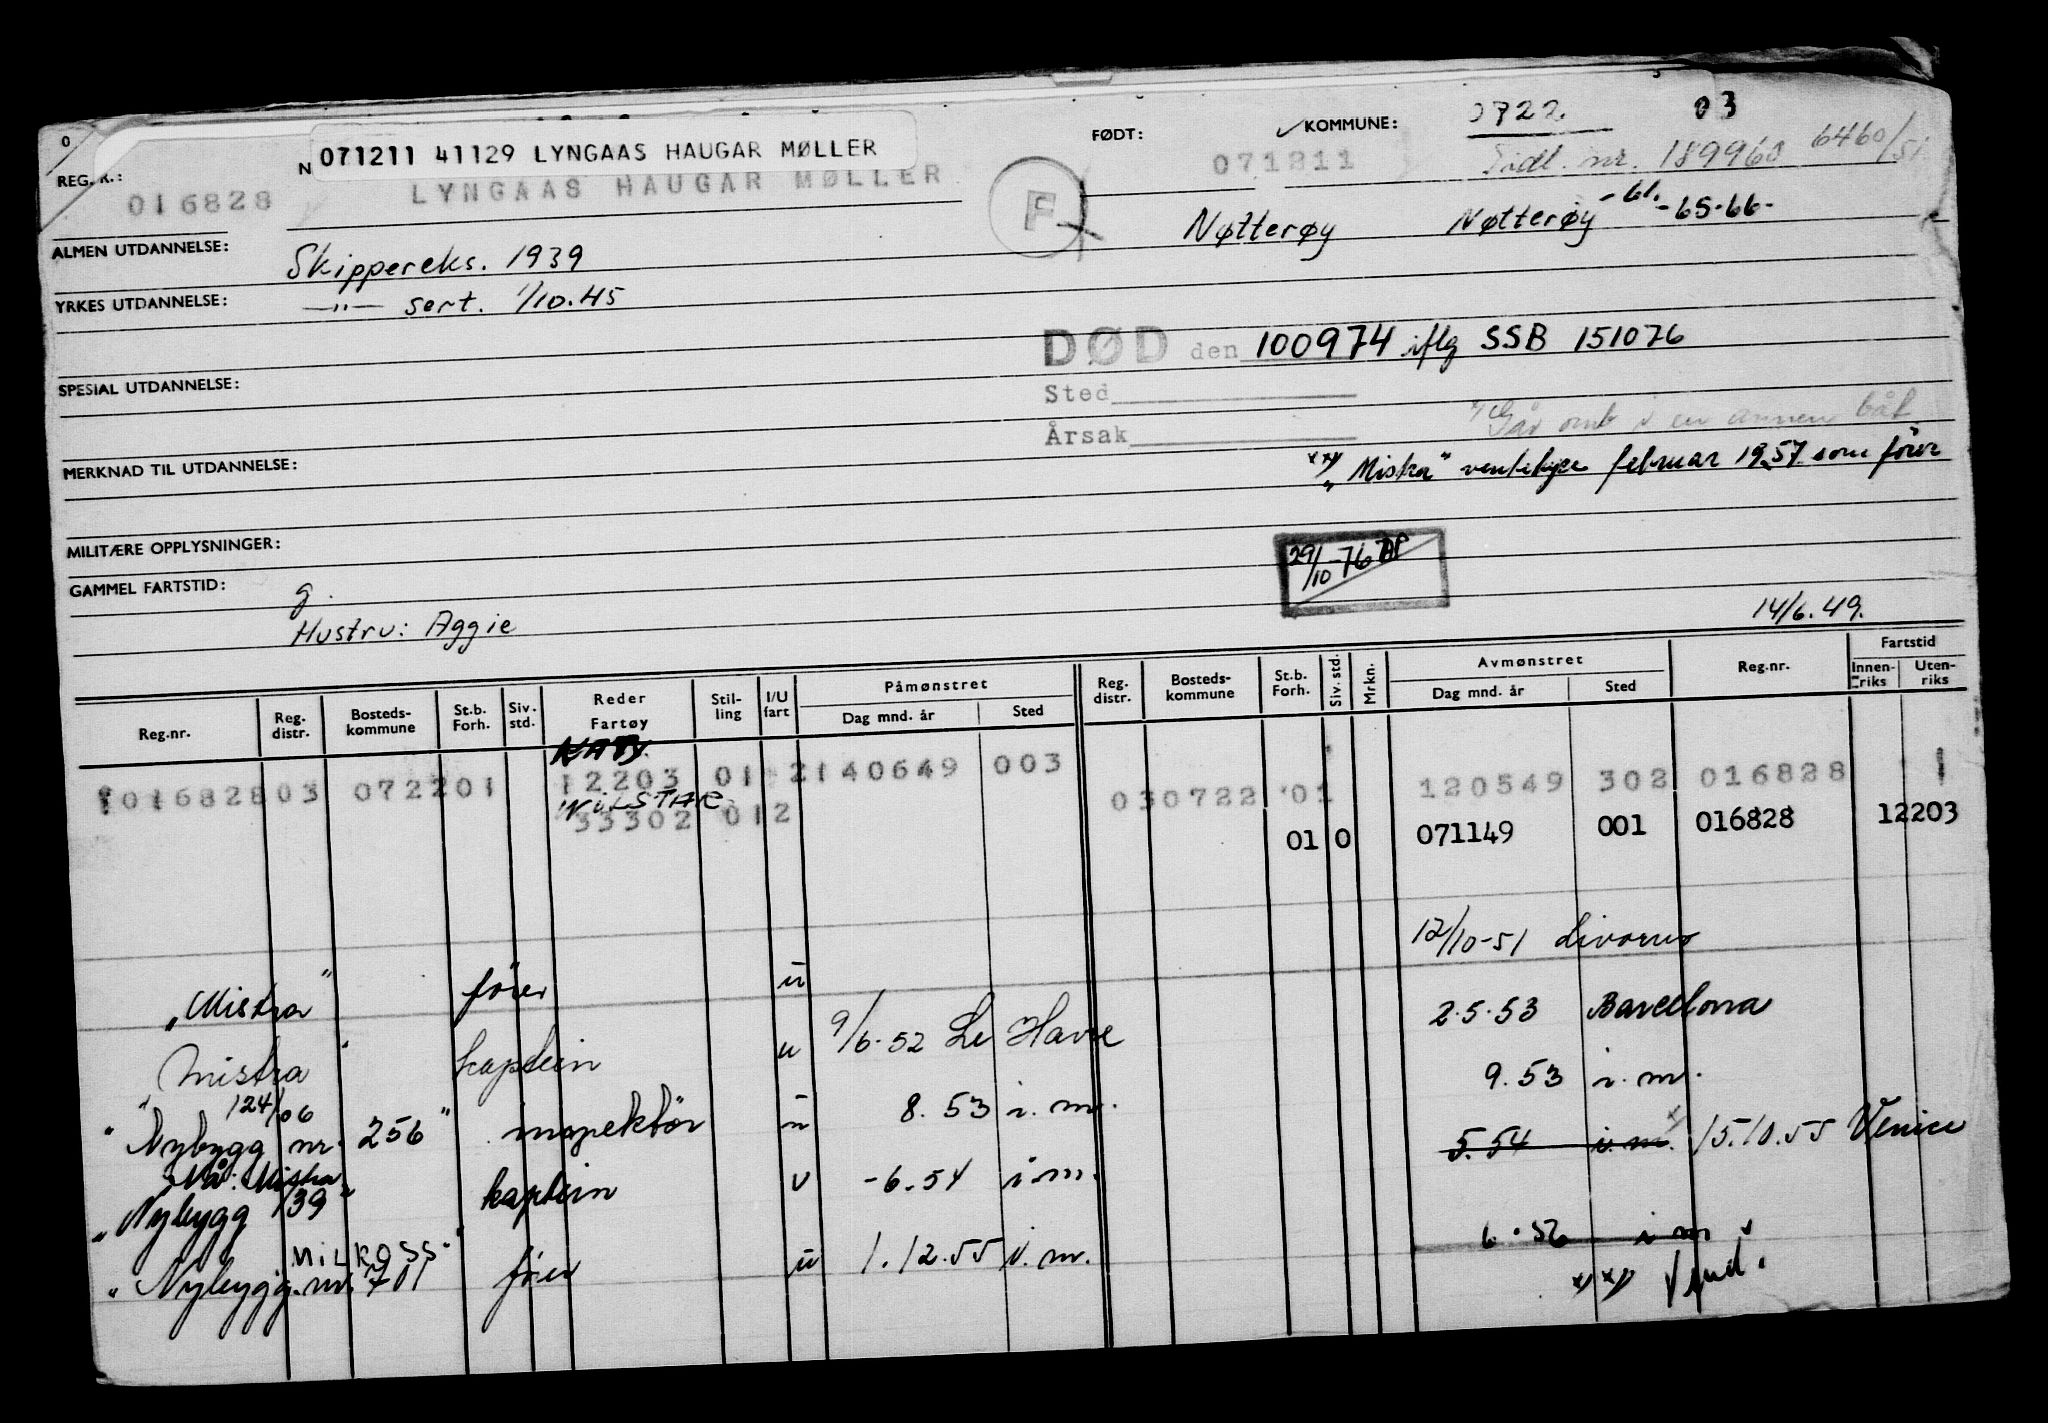 O
N
071211 41129 LYNGAAS HAUGAR MØLLER
FØDT:
KOMMUNE:
0722.
03
REG. R.:
016828
LYNGAAS HAUGAR MØLLER
F
071211
Tidl. nr. 189960 6460/51
Nøtterøy
Nøtterøy -61. -65-66-
ALMEN UTDANNELSE:
Skippereks. 1939
YRKES UTDANNELSE:
—"— sert. 1/10.45
DØD den 100974 iflg SSB 151076
SPESIAL UTDANNELSE:
Sted
Går om i en annen båt
Årsak
MERKNAD TIL UTDANNELSE:
februar 1957 som fører
MILITÆRE OPPLYSNINGER:
29/10-76
GAMMEL FARTSTID:
g.
Hustru: Aggie
14/6.49.
Reg.nr.
Reg. distr.
Bosteds-kommune
St.b. Forh.
Siv. std.
Reder Fartøy
Stil-ling
I/U fart
Påmønstret
Dag mnd. år
Sted
Reg. distr.
Bosteds-kommune
St.b. Forh.
Siv. std.
Mrkn.
Avmønstret
Dag mnd. år
Sted
Reg.nr.
Fartstid
Innen-riks
Uten-riks
KATY.
016828 03 0722 01 12203 01 2 140649 003
030722 01 120549 302 016828 1
33302 012
01 0 071149 001 016828 12203
12/10-51 Livorno
"Mistra" fører u
2.5.53 Barcellona
"Mistra" kaptein u 9/6-52 Le Havre
9.53 i.m.
124/06
"Nybygg nr. 256" inspektør u 8.53 i.m.
5.54 i.m. 15.10.55 Venice
Nå: Mistra
"Nybygg 139" kaptein u -6.54 i.m.
6.56 i m
MILROSS
"Nybygg. nr. 701" fører u 1.12.55 i.m.
xx) Vend.